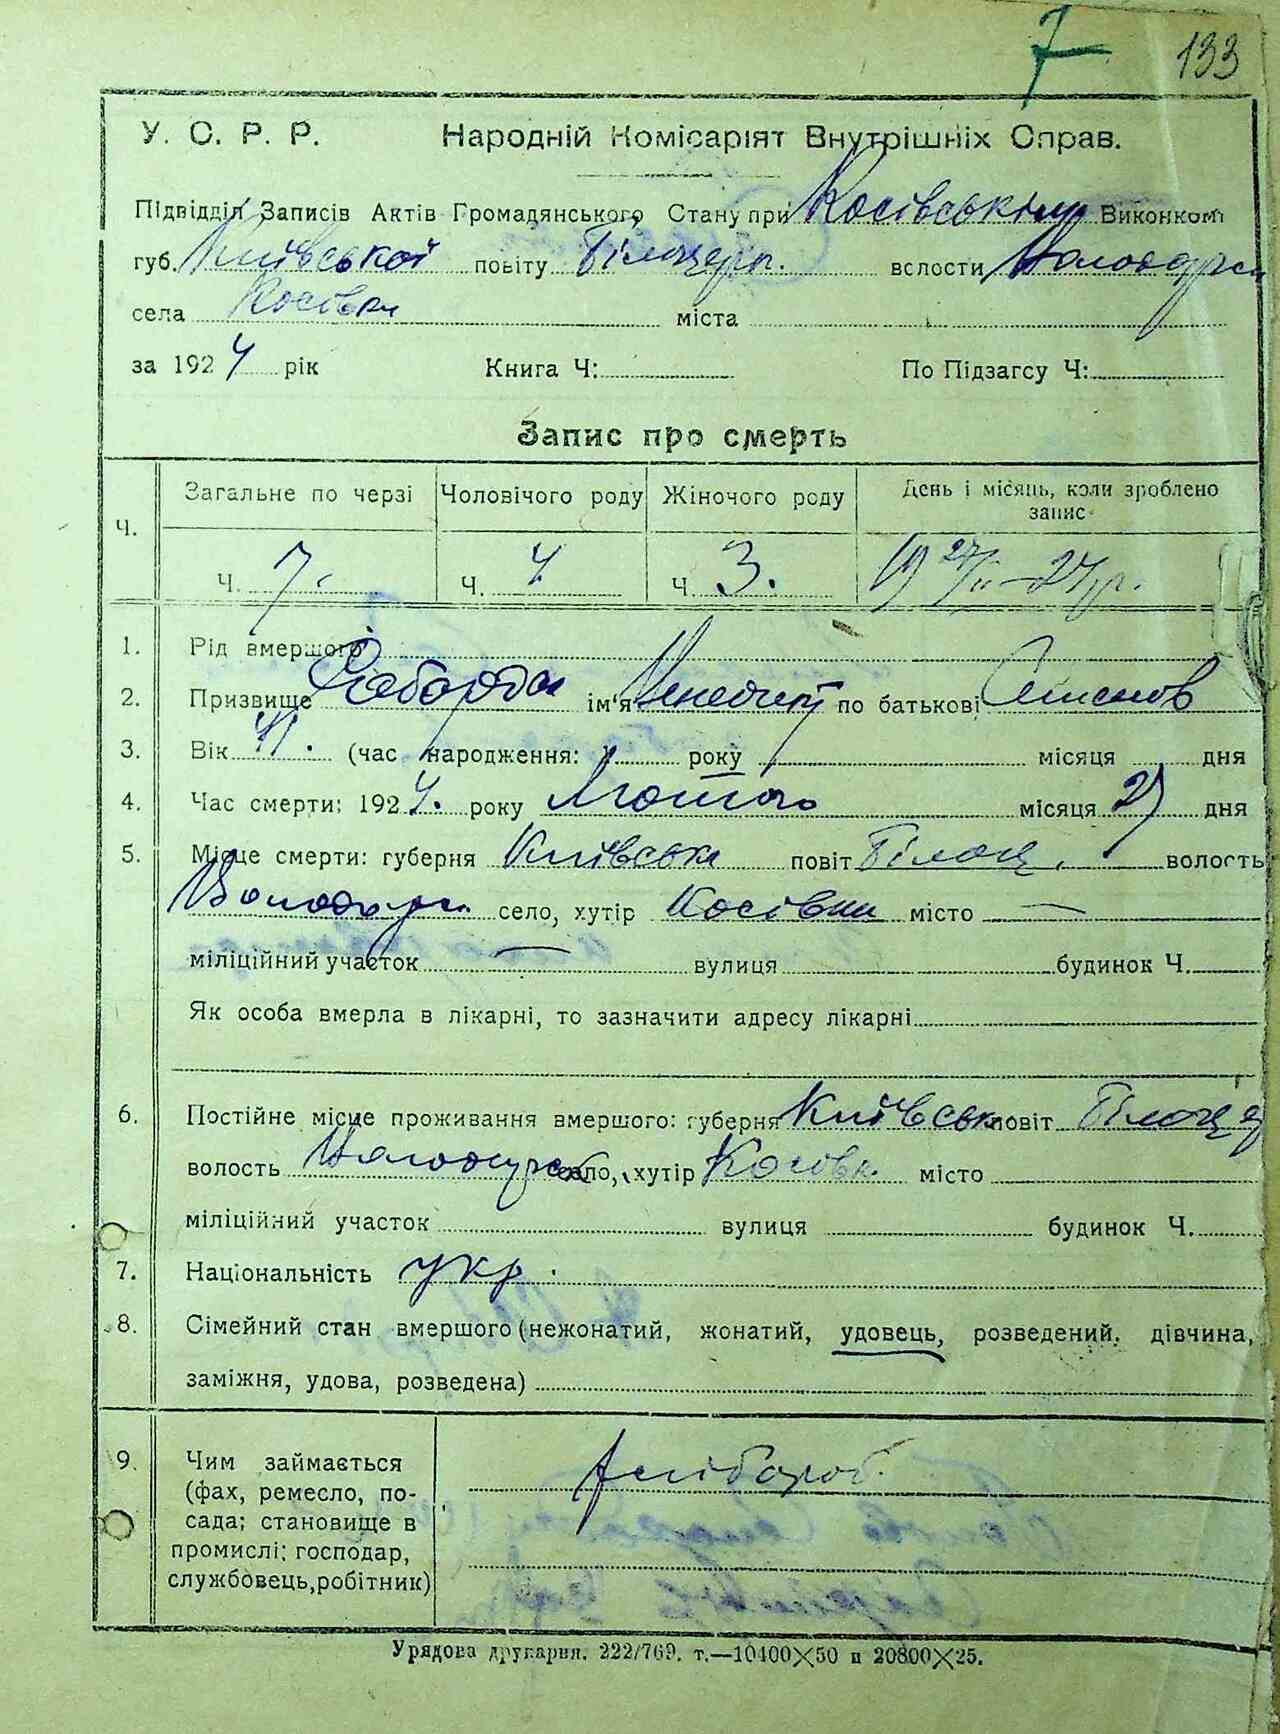 7 133
У. С. Р. Р. Народній Комісаріят Внутрішніх Справ.
Підвідділ Записів Актів Громадянського Стану при Косівським Виконком
губ. Київської повіту Білоцерк. волости Володарсk
села Косівки міста
за 1924 рік Книга Ч: По Підзагсу Ч:
Запис про смерть
Ч. Загальне по черзі Чоловічого роду Жіночого роду День і місяць, коли зроблено запис
Ч. 7. Ч. 4 Ч 3. 19 27/II–24 р.
1. Рід вмершого
2. Призвище імʼя по батькові Семенов
3. Вік (час народження: року місяця дня
4. Час смерти: 1924. року Лютого місяця 27 дня
5. Місце смерти: губерня Київська повіт Білоц. волость
Володарс. село, хутір Косівки місто —
міліційний участок — вулиця будинок Ч.
Як особа вмерла в лікарні, то зазначити адресу лікарні
6. Постійне місце проживання вмершого: губерня Київськ повіт Білоц
волость Володарс село, хутір Косівк. місто
міліційний участок вулиця будинок Ч.
7. Національність укр.
8. Сімейний стан вмершого (нежонатий, жонатий, удовець, розведений, дівчина,
заміжня, удова, розведена)
9. Чим займається
(фах, ремесло, по-
сада; становище в
промислі; господар,
службовець, робітник)
хлібороб.
Урядова друкарня. 222/769. т.—10400×50 и 20800×25.